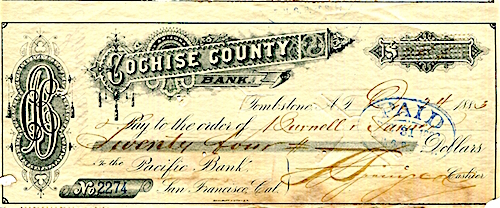 COCHISE COUNTY
BANK
$
Tombstone, A.T. 1883
PAID
Pay to the order of
Twenty Four Dollars
To the Pacific Bank
Cashier
No. 2274 San Francisco, Cal.